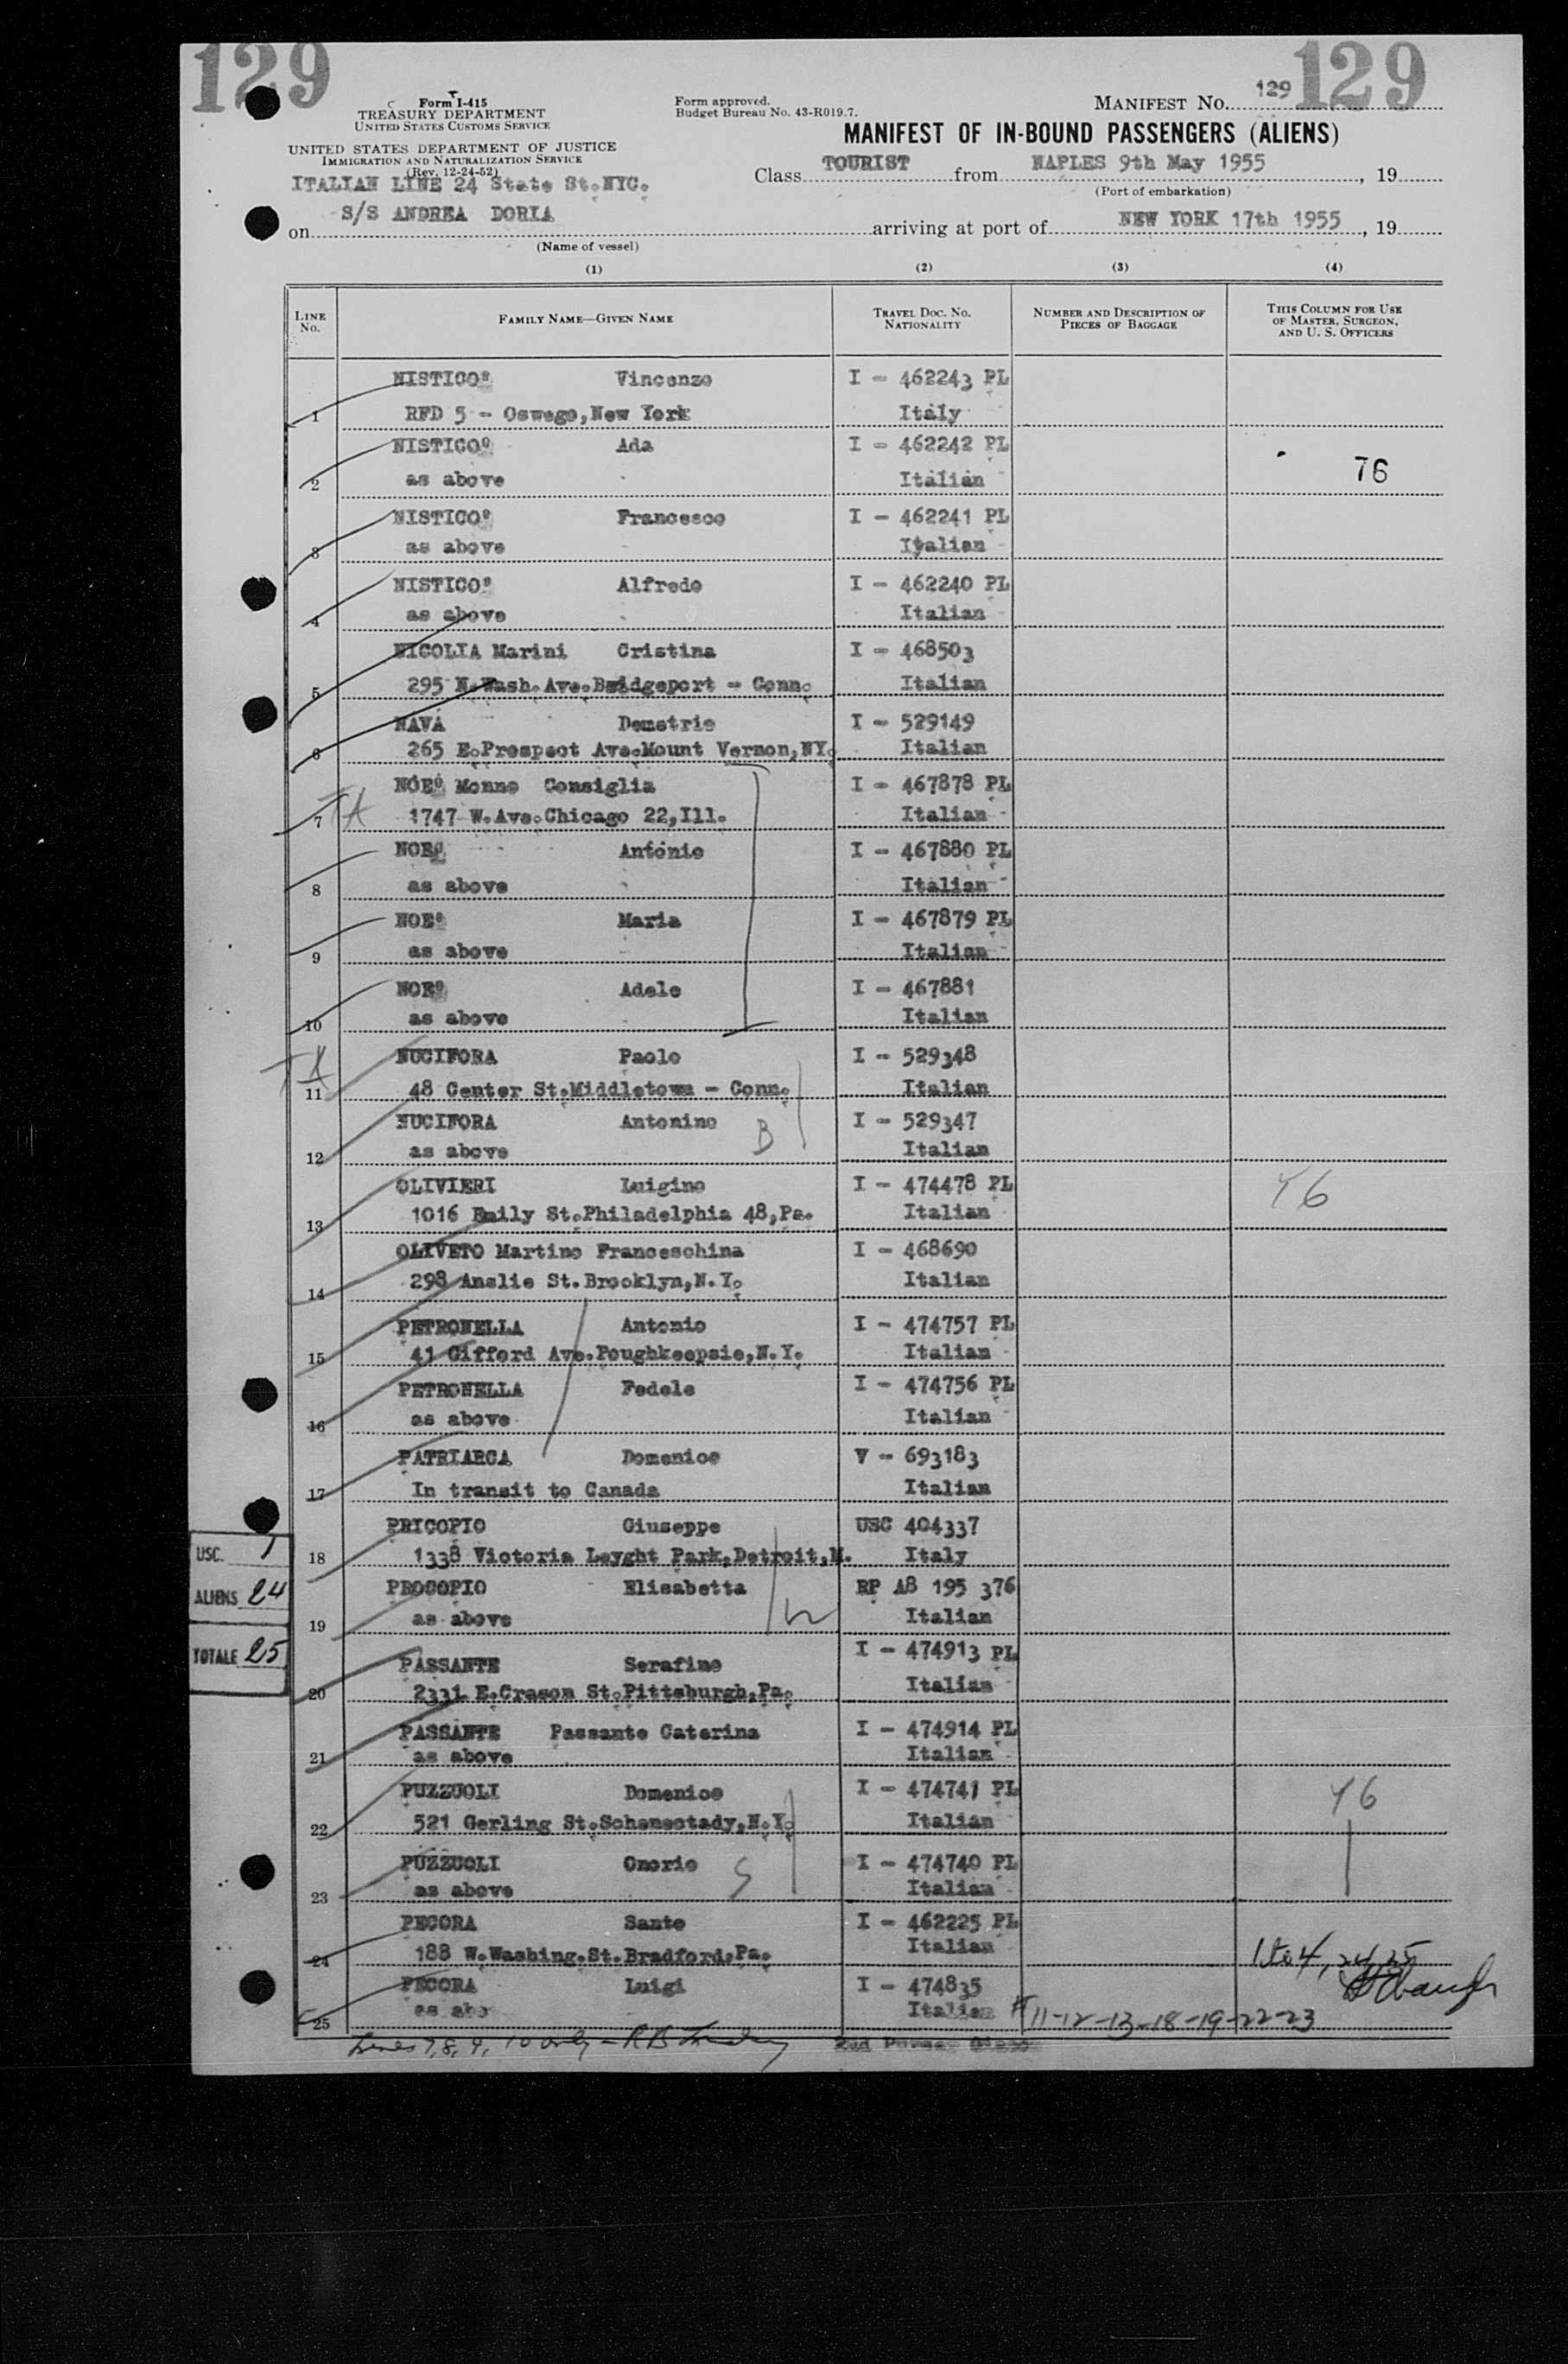 129
129
Form I-415
TREASURY DEPARTMENT
UNITED STATES CUSTOMS SERVICE
UNITED STATES DEPARTMENT OF JUSTICE
IMMIGRATION AND NATURALIZATION SERVICE
(Rev. 12-24-52)
Form approved.
Budget Bureau No. 43-R019.7.
MANIFEST NO. 129
MANIFEST OF IN-BOUND PASSENGERS (ALIENS)
ITALIAN LINE 24 State St.NYC.
Class TOURIST from NAPLES 9th May 1955, 19
(Port of embarkation)
on S/S ANDREA DORIA arriving at port of NEW YORK 17th 1955, 19
(Name of vessel)
(1) (2) (3) (4)
LINE No. FAMILY NAME—GIVEN NAME TRAVEL DOC. NO. NATIONALITY NUMBER AND DESCRIPTION OF PIECES OF BAGGAGE THIS COLUMN FOR USE OF MASTER, SURGEON, AND U. S. OFFICERS
NISTICO' Vincenzo I - 462243 PL
1 RFD 5 - Oswego,New York Italy
NISTICO' Ada I - 462242 PL
2 as above Italian 76
NISTICO' Francesco I - 462241 PL
3 as above Italian
NISTICO' Alfredo I - 462240 PL
4 as above Italian
NICOLIA Marini Cristina I - 468503
5 295 N.Wash.Ave.Bridgeport - Conn. Italian
NAVA Demetrio I - 529149
6 265 E.Prospect Ave.Mount Vernon,NY. Italian
NOE' Monno Consiglia I - 467878 PL
7 TA 1747 W.Ave.Chicago 22,Ill. Italian
NOE' Antonio I - 467880 PL
8 as above Italian
NOE' Maria I - 467879 PL
9 as above Italian
NOE' Adele I - 467881
10 as above Italian
NUCIFORA Paolo I - 529348
11 48 Center St.Middletown - Conn. Italian
NUCIFORA Antonino B I - 529347
12 as above Italian
OLIVIERI Luigino I - 474478 PL
13 1016 Emily St.Philadelphia 48,Pa. Italian
OLIVETO Martino Franceschina I - 468690
14 298 Anslie St.Brooklyn,N.Y. Italian
PETRONELLA Antonio I - 474757 PL
15 41 Gifford Ave.Poughkeepsie,N.Y. Italian
PETRONELLA Fedele I - 474756 PL
16 as above Italian
PATRIARCA Domenico V - 693183
17 In transit to Canada Italian
PRICOPIO Giuseppe USC 404337
18 1338 Victoria Leyght Park,Detroit,M. Italy
PROCOPIO Elisabetta RP A8 195 376
19 as above Italian
USC. 1
ALIENS 24
TOTALE 25
PASSANTE Serafino I - 474913 PL
20 2331 E.Crason St.Pittsburgh,Pa. Italian
PASSANTE Passante Caterina I - 474914 PL
21 as above Italian
PUZZUOLI Domenico I - 474741 PL
22 521 Gerling St.Schenectady,N.Y. Italian
PUZZUOLI Onorio I - 474740 PL
23 as above Italian
PECORA Sante I - 462225 PL
24 188 W.Washing.St.Bradford,Pa. Italian
PECORA Luigi I - 474835
25 as abo Italian
1 to 4, 24,25
#11-12-13-18-19-22-23
Lines 7, 8, 9, 10 only - RB
2nd Purser